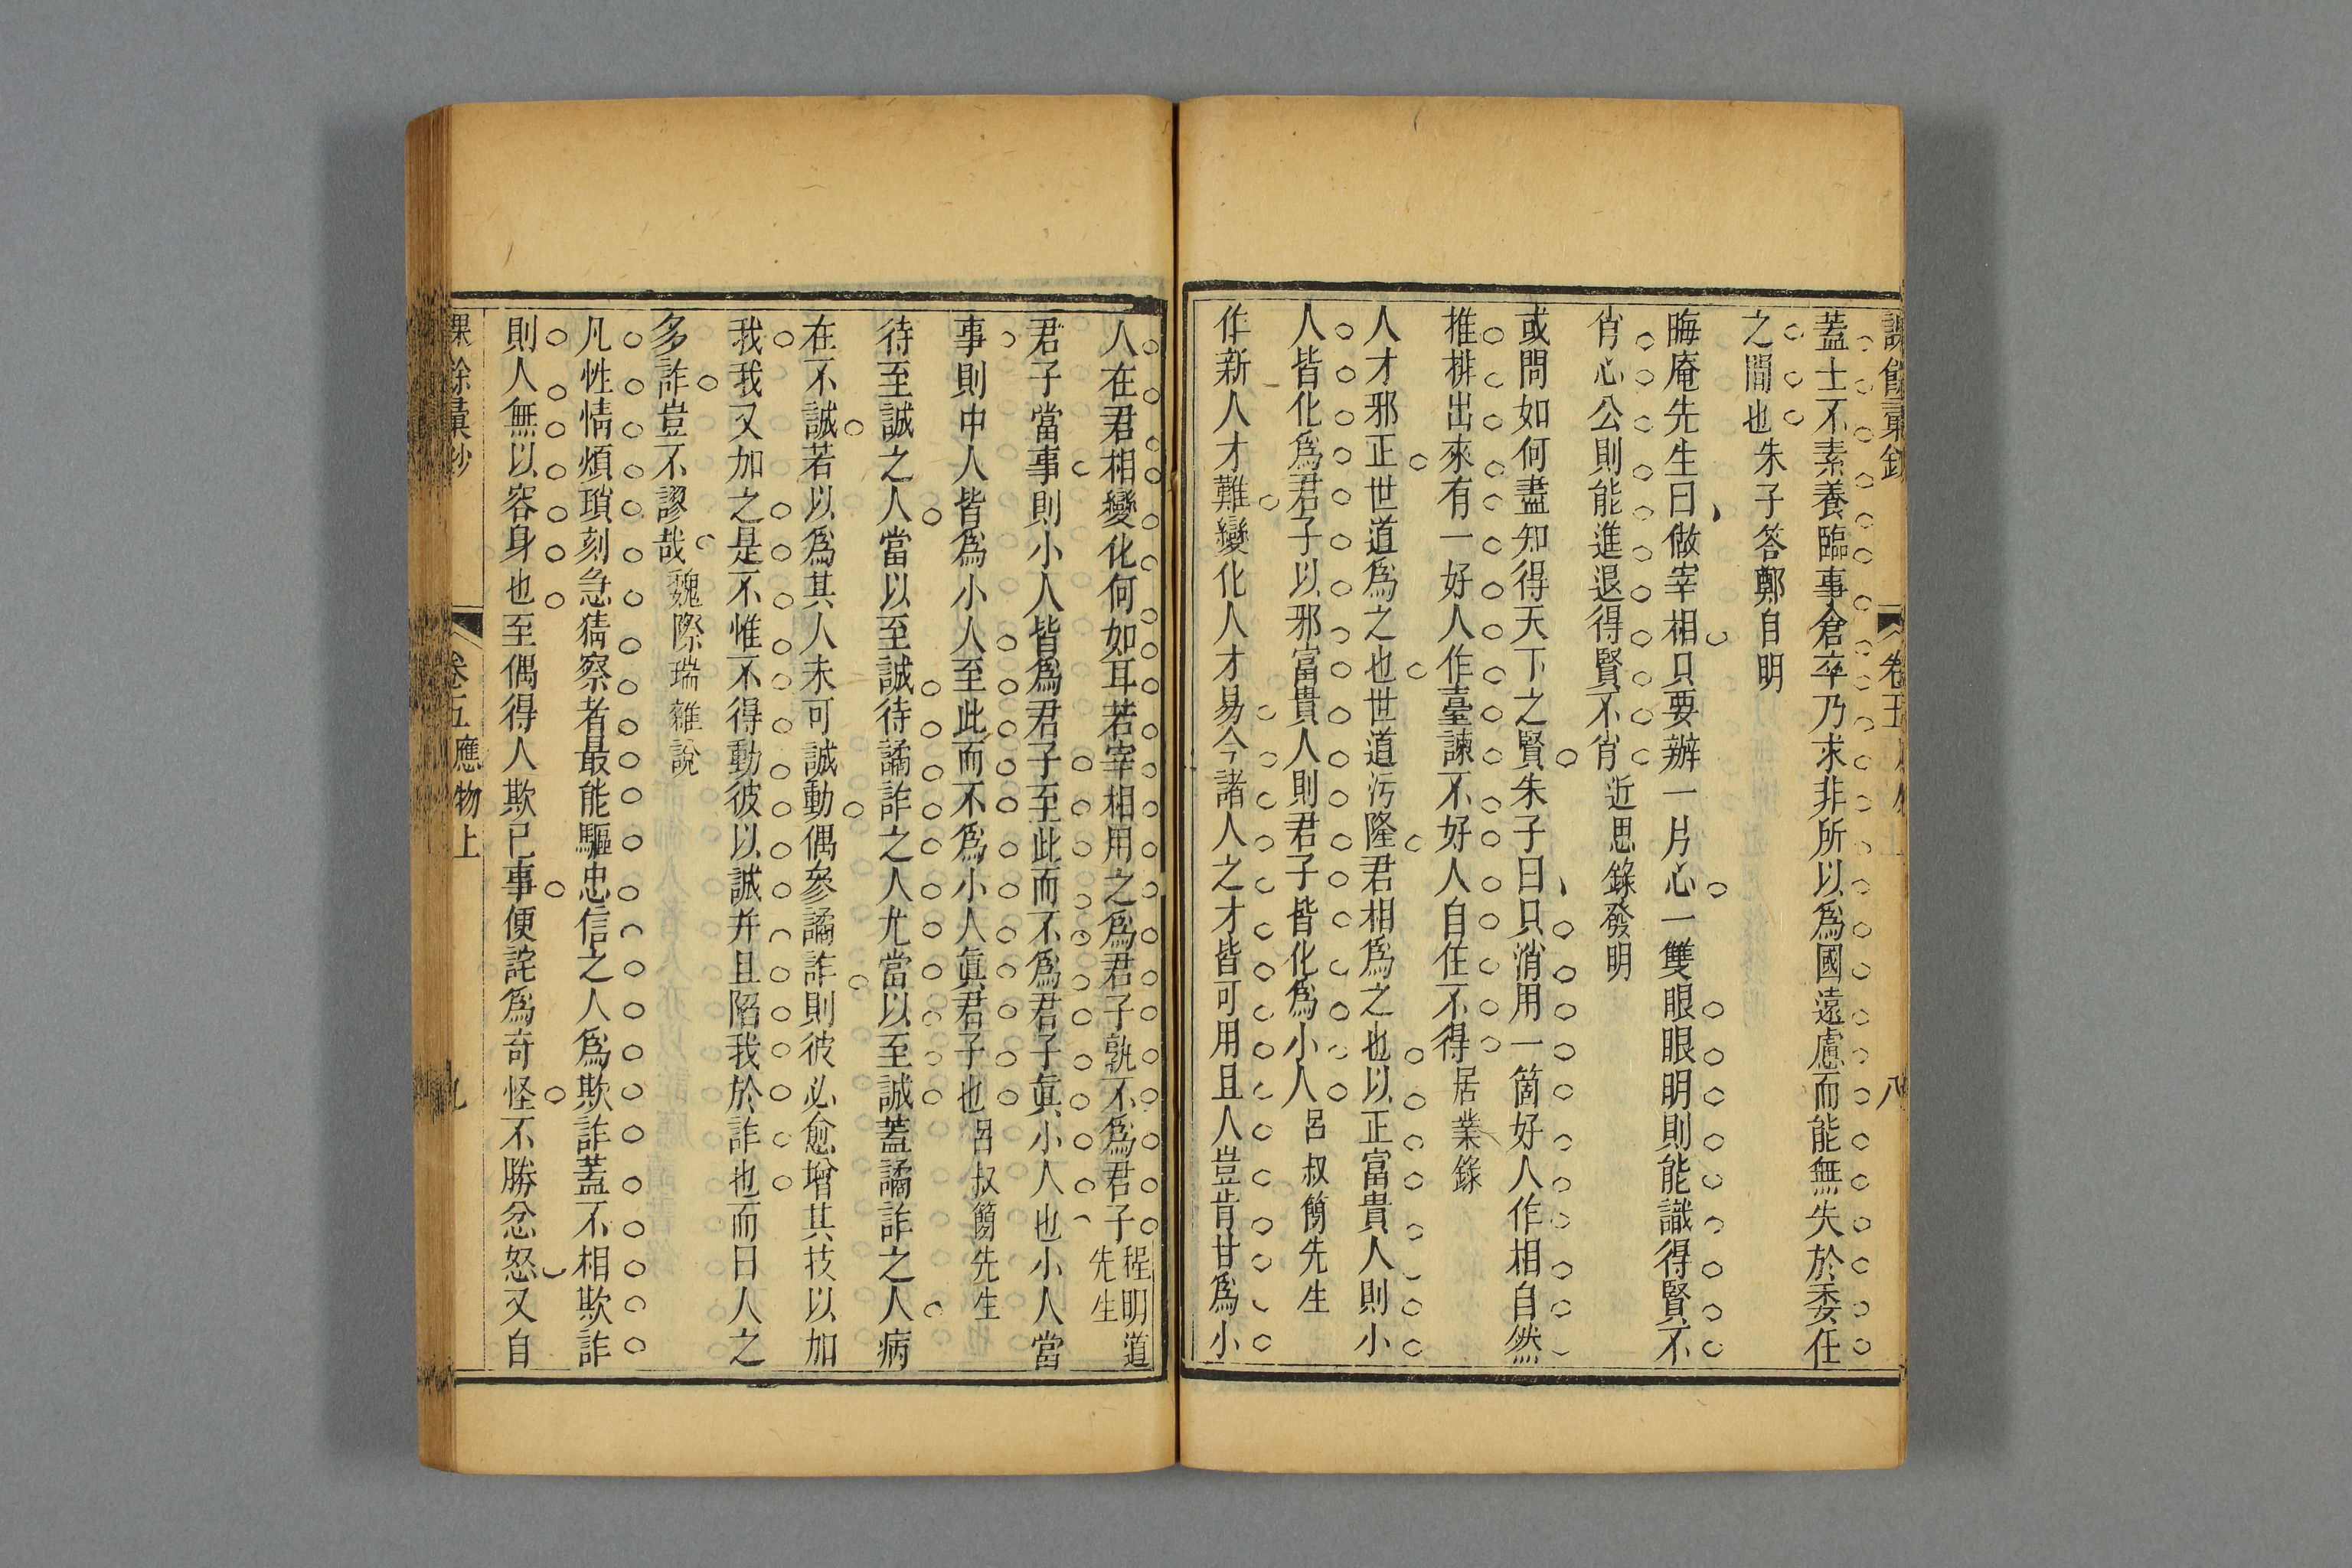 課餘彙鈔 卷五 八
蓋士不素養臨事倉卒乃求非所以爲國遠慮而能無失於委任
之間也朱子答鄭自明
晦庵先生曰做宰相只要辦一片心一雙眼眼明則能識得賢不
肖心公則能進退得賢不肖近思錄發明
或問如何盡知得天下之賢朱子曰只消用一箇好人作相自然
推排出來有一好人作臺諫不好人自住不得居業錄
人才邪正世道爲之也世道污隆君相爲之也以正富貴人則小
人皆化爲君子以邪富貴人則君子皆化爲小人呂叔簡先生
作新人才難變化人才易今諸人之才皆可用且人豈肯甘爲小
人在君相變化何如耳若宰相用之爲君子孰不爲君子程明道先生
君子當事則小人皆爲君子至此而不爲君子眞小人也小人當
事則中人皆爲小人至此而不爲小人眞君子也呂叔簡先生
待至誠之人當以至誠待譎詐之人尤當以至誠蓋譎詐之人病
在不誠若以爲其人未可誠動偶參譎詐則彼必愈增其技以加
我我又加之是不惟不得動彼以誠并且陷我於詐也而曰人之
多詐豈不謬哉魏際瑞雜說
凡性情煩瑣刻急猜察者最能驅忠信之人爲欺詐蓋不相欺詐
則人無以容身也至偶得人欺已事便詫爲奇怪不勝忿怒又自
課餘彙鈔 卷五應物上 九